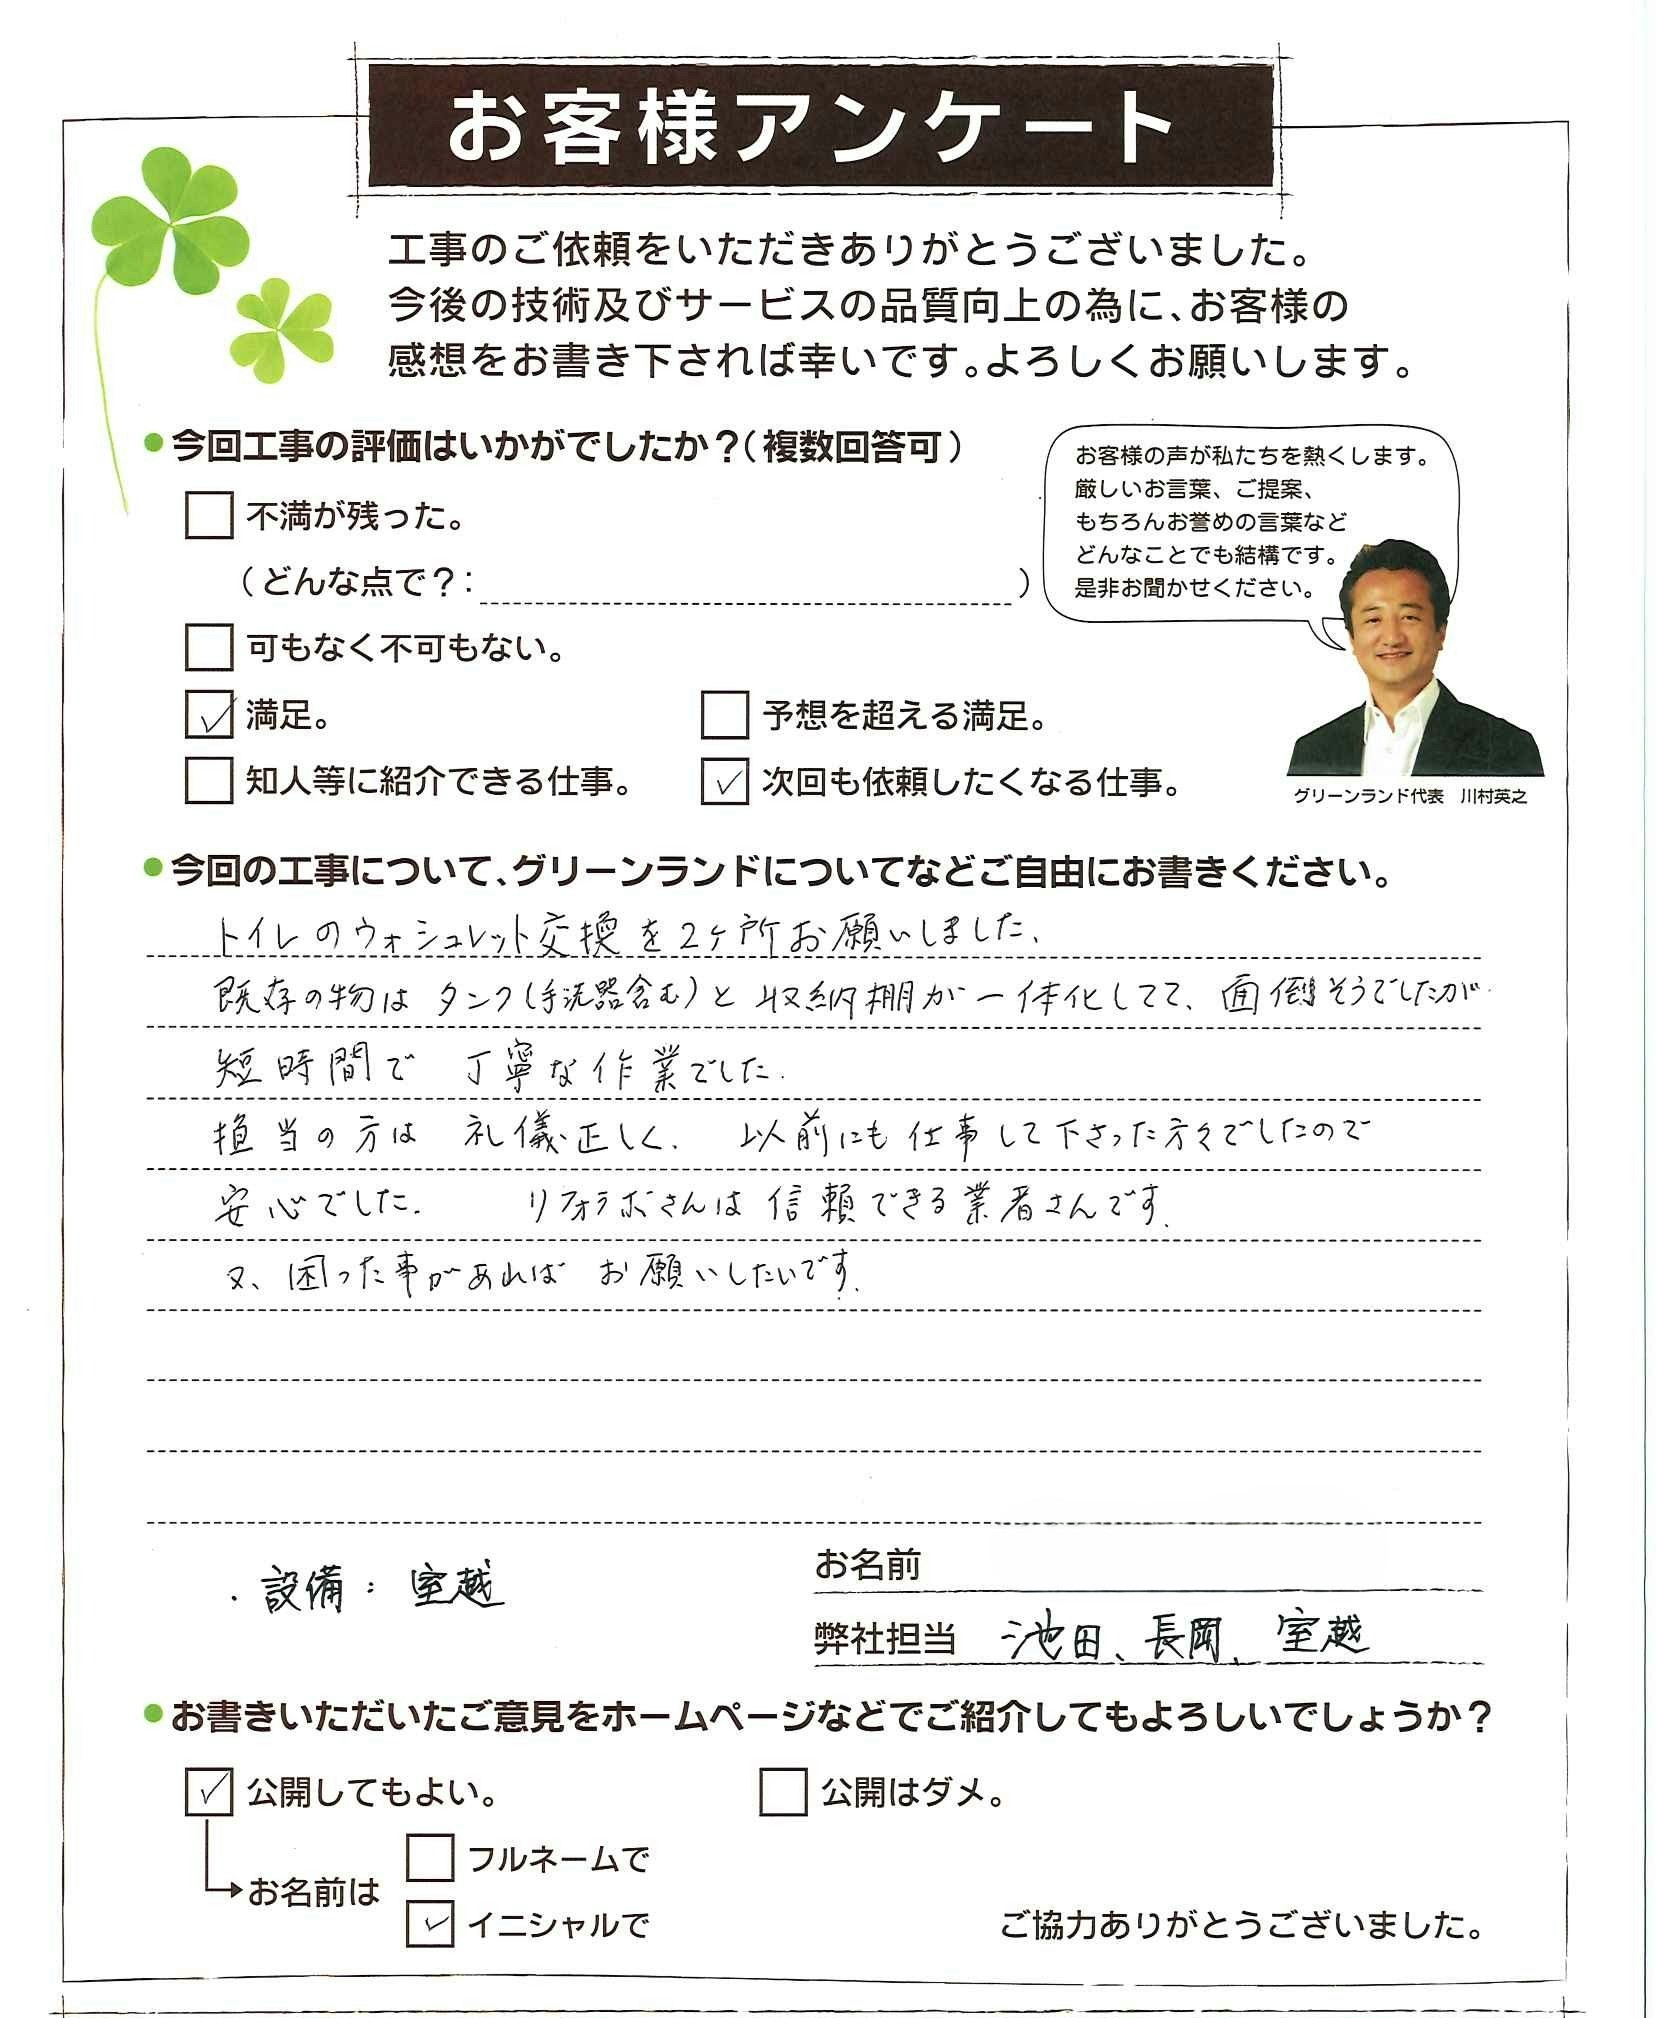 お客様アンケート
工事のご依頼をいただきありがとうございました。
今後の技術及びサービスの品質向上の為に、お客様の
感想をお書き下されば幸いです。よろしくお願いします。
●今回工事の評価はいかがでしたか？（複数回答可）
お客様の声が私たちを熱くします。
厳しいお言葉、ご提案、
もちろんお誉めの言葉など
どんなことでも結構です。
是非お聞かせください。
グリーンランド代表　川村英之
□ 不満が残った。
（どんな点で？：　　　　　　　　）
□ 可もなく不可もない。
☑ 満足。　□ 予想を超える満足。
□ 知人等に紹介できる仕事。　☑ 次回も依頼したくなる仕事。
●今回の工事について、グリーンランドについてなどご自由にお書きください。
トイレのウォシュレット交換を2ヶ所お願いしました、
既存の物は タンク(手洗器含む)と 収納棚が一体化してて、面倒そうでしたが
短時間で 丁寧な作業でした.
担当の方は 礼儀正しく. 以前にも仕事して下さった方々でしたので
安心でした. リフォラボさんは信頼できる業者さんです.
又、困った事があれば お願いしたいです.
・設備：室越
お名前
弊社担当　池田、長岡、室越
●お書きいただいたご意見をホームページなどでご紹介してもよろしいでしょうか？
☑ 公開してもよい。　□ 公開はダメ。
□ フルネームで
お名前は
☑ イニシャルで
ご協力ありがとうございました。